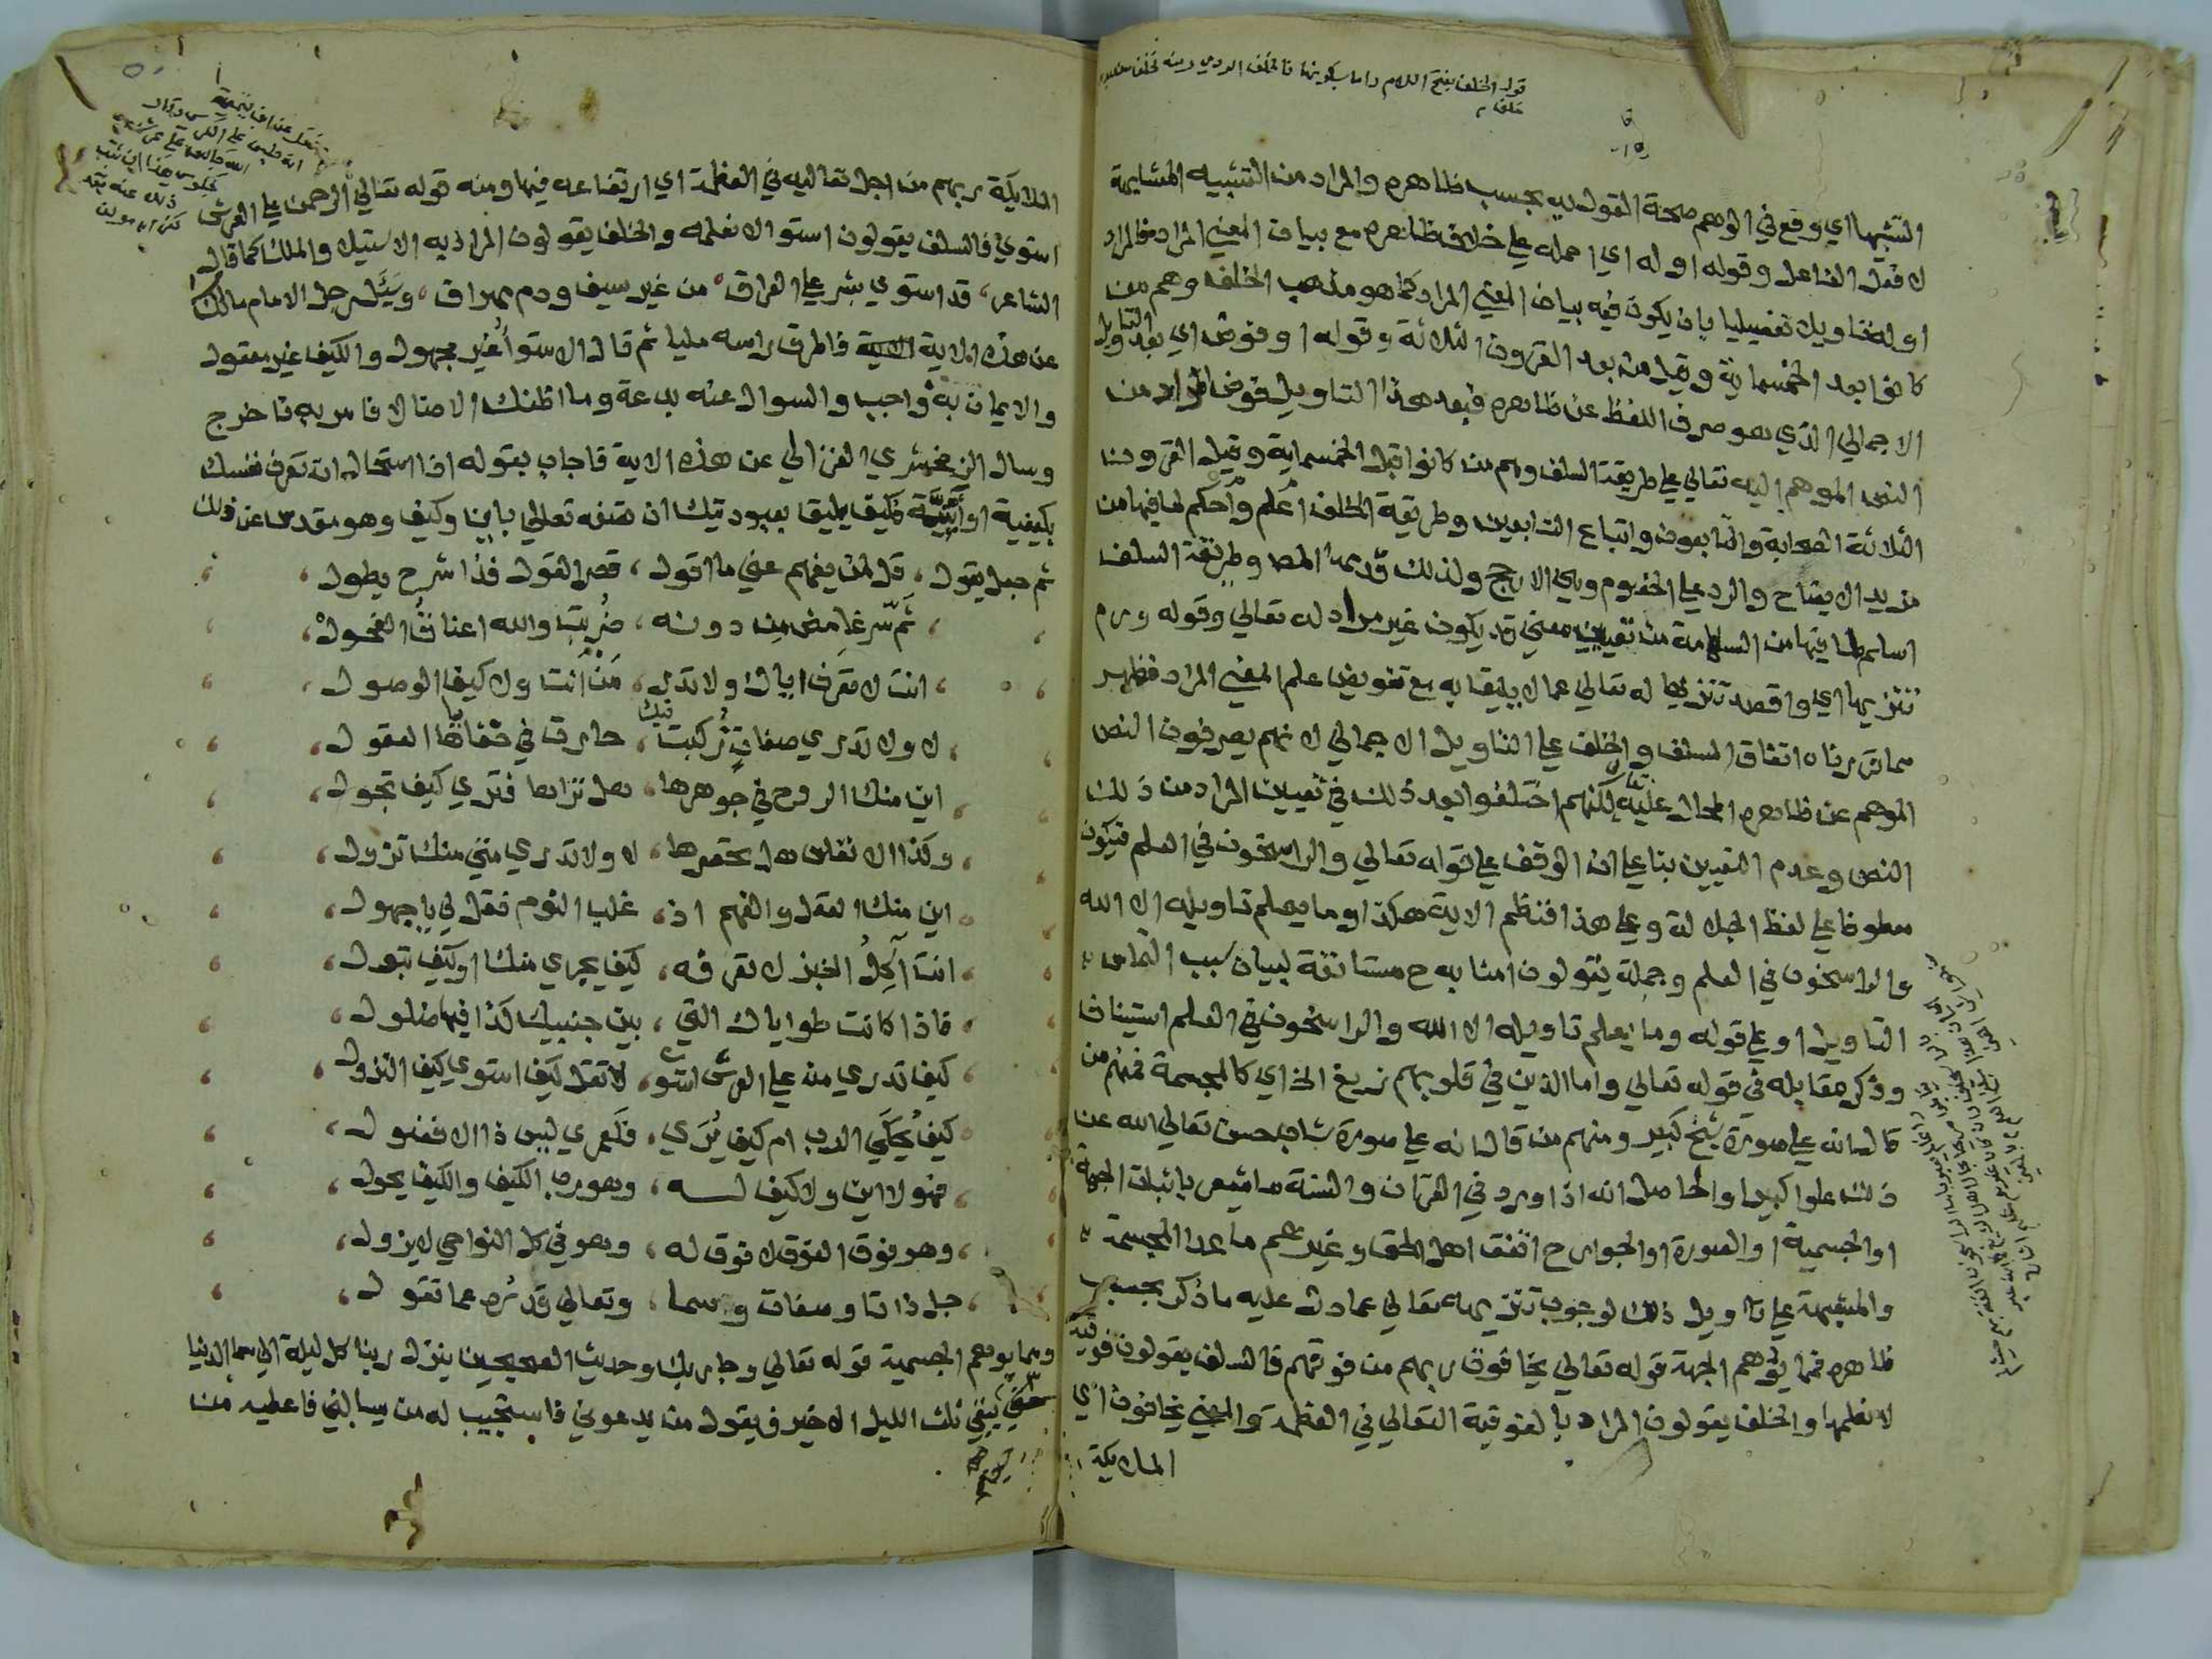 قوله الخلف بفتح اللام واما بسكونها فالخلف الردي ومنه فخلف من بعدهم
خلف
التشبيها اي وقع في الوهم صحة القول به بحسب ظاهره والمراد من التشبيه المشابهة
لا فعل الفاعل وقوله اوله اي احمله على خلاف ظاهره مع بيان المعني المراد فالمراد
اوله تاويلا تفصيليا بان يكون فيه بيان المعني المراد كما هو مذهب الخلف وهم من
كانوا بعد الخمسماية وقيل من بعد القرون الثلاثة وقوله او فوض اي بعد التاويل
الاجمالي الذي هو صرف اللفظ عن ظاهره فبعد هذا التاويل فوض المراد من
النص الموهم اليه تعالي على طريقة السلف وهم من كانوا قبل الخمسماية وقيل القرون
الثلاثة الصحابة والتابعون واتباع التابعين وطريقة الخلف اعلم واحكم لما فيها من
مزيد الايضاح والرد على الخصوم وهي الارجح ولذلك قدمها المص وطريقة السلف
اسلم لما فيها من السلامة من تعيين معني قد يكون غير مراد له تعالي وقوله ورم
تنزيها اي واقصد تنزيها له تعالي عما لا يليق به مع تفويض علم المعني المراد فظهر
مما قررناه اتفاق السلف والخلف على التاويل الاجمالي لانهم يصرفون النص
الموهم عن ظاهره المحال عليه تعالي لكنهم اختلفوا بعد ذلك في تعيين المراد من ذلك
النص وعدم التعيين بنا على ان الوقف على قوله تعالي والراسخون في العلم فيكون
معطوفا على لفظ الجلالة وعلى هذا فنظم الاية هكذا وما يعلم تاويله الا الله
والراسخون في العلم وجملة يقولون امنا به ح مستانفة لبيان سبب التماس
التاويل او على قوله وما يعلم تاويله الا الله والراسخون في العلم استيناف
وذكر مقابله في قوله تعالي واما الذين في قلوبهم زيغ الخ اي كالمجسمة فمنهم من
قال انه على صورة شيخ كبير ومنهم من قال انه على صورة شاب حسن تعالي الله عن
ذلك علوا كبيرا والحاصل انه اذا ورد في القران والسنة ما يشعر باثبات الجهة
او الجسمية او الصورة او الجوارح اتفق اهل الحق وغيرهم ما عدا المجسمة
والمشبهة على تاويل ذلك لوجوب تنزيهه تعالي عما دل عليه ما ذكر بحسب
ظاهره فمما يوهم الجهة قوله تعالي يخافون ربهم من فوقهم فالسلف يقولون فوقية
لا نعلمها والخلف يقولون المراد بالفوقية التعالي في العظمة والمعني يخافون اي
الملايكة
الملايكة ربهم من اجل تعاليه في العظمة اي ارتفاعه فيها ومنه قوله تعالي الرحمن على العرش
استوي فالسلف يقولون استوا لا نعلمه والخلف يقولون المراد به الاستيلا والملك كما قال
الشاعر، قد استوي بشر على العراق، من غير سيف ودم مهراق، وسئل رجل الامام مالك
عن هذه الاية فاطرق راسه مليا ثم قال الاستوا غير مجهول والكيف غير معقول
والايمان به واجب والسوال عنه بدعة وما اظنك الا ضالا فامر به فاخرج
وسال الزمخشري الغزالي عن هذه الاية فاجاب بقوله اذا استحال ان تعرف نفسك
بكيفية او أينية فكيف يليق بعبوديتك ان تصفه تعالي باين وكيف وهو مقدس عن ذلك
ثم جعل يقول، قل لمن يفهم عني ما اقول، قصر القول فذا شرح يطول،
ثَم سر غامض من دونه، ضُربت والله اعناق الفحول،
انت لا تعرف اياك ولا تدر، من انت ولا كيف الوصول،
لا ولا تدري صفات ركبت فيك، حارت في خفاياها العقول،
اين منك الروح في جوهرها، هل تراها فتري كيف تجول،
وكذا الانفاس هل تحصرها، لا ولا تدري متي منك تزول،
اين منك العقل والفهم اذ، غلب النوم فقل لي يا جهول،
انت آكل الخبز لا تعرفه، كيف يجري منك او كيف تبول،
فاذا كانت طواياك التي، بين جنبيك كذا فيها ضلول،
كيف تدري من على العرش استوي، لا تقل كيف استوي كيف النزول،
كيف يُحكي الرب ام كيف يُري، فلعمري ليس ذا الا فضول،
فهو لا اين ولا كيف لـــه، وهو رب الكيف والكيف يحول،
وهو فوق الفوق لا فوق له، وهو في كل النواحي لا يزول،
جل ذاتا وصفات وسما، وتعالي قدرُه عما تقول،
ومما يوهم الجسمية قوله تعالي وجا ربك وحديث الصحيحين ينزل ربنا كل ليلة الي سما الدنيا
حين يبقي ثلث الليل الاخير فيقول من يدعوني فاستجيب له من يسالني فاعطيه من